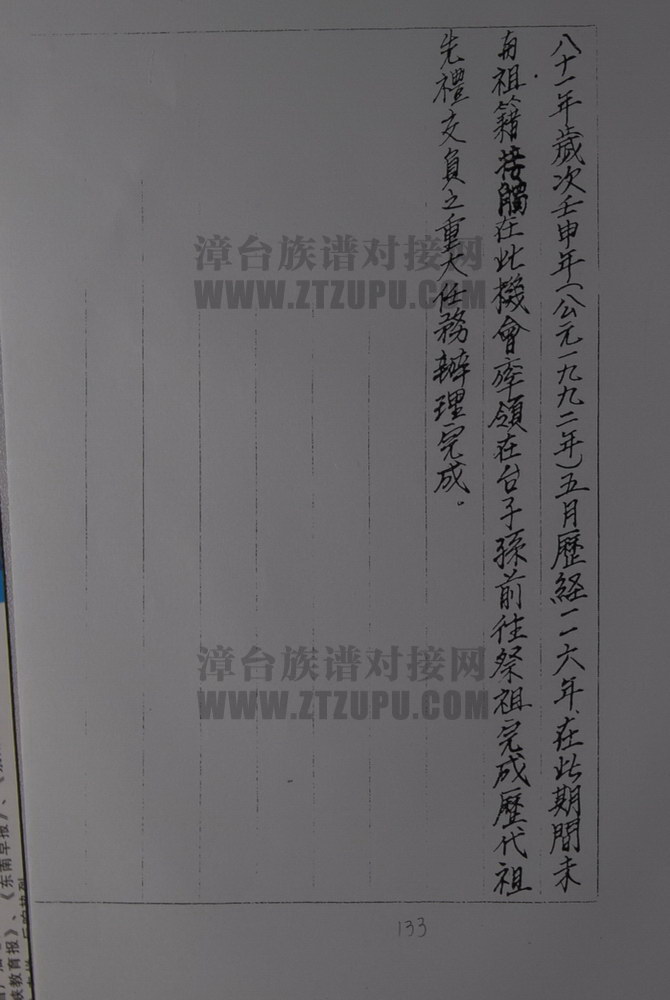 八十一年歲次壬申年(公元一九九二年)五月歷経一一六年、在此期間未
與祖籍接觸在此機會率領在台子孫前往祭祖完成歷代祖
先禮交負之重大任務辦理完成.
漳台族谱对接网
WWW.ZTZUPU.COM
漳台族谱对接网
WWW.ZTZUPU.COM
133
族教育报》、《东南早报》、